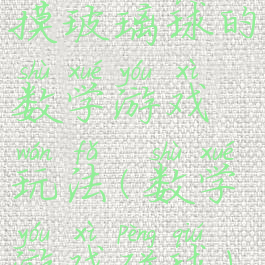 摸玻璃球的
shù xué yóu xì
数学游戏
wán fǎ shù xué
玩法(数学
yóu xì pèng qiú
游戏碰球)